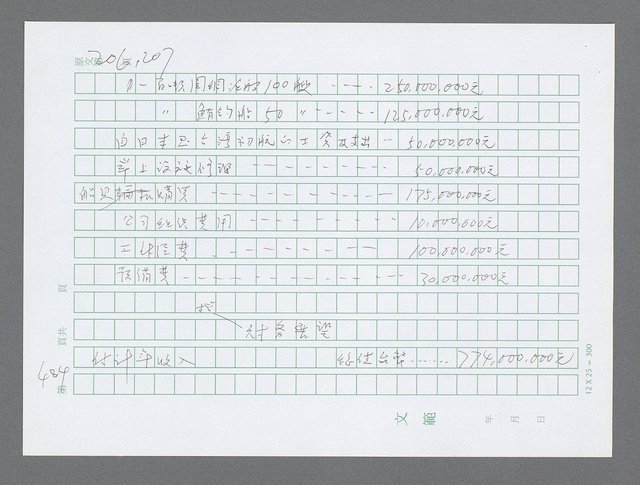 原文 頁 206,207
100艘 ---- 250,000,000元
〃 鮪釣船 50 〃 ------ 125,000,000元
自日本至台湾初航の工資及支出 -- 50,000,000元
岸上設施修理 -------- 50,000,000元
船具 購買 ----------- 175,000,000元
公司組織費用 --------- 10,000,000元
工作経費 ---------- 100,000,000元
預備費 ------------- 30,000,000元
財務展望
估計年收入 台幣...... 774,000,000元
第 484 頁共 頁
12 X 25 = 300
文範
年 月 日